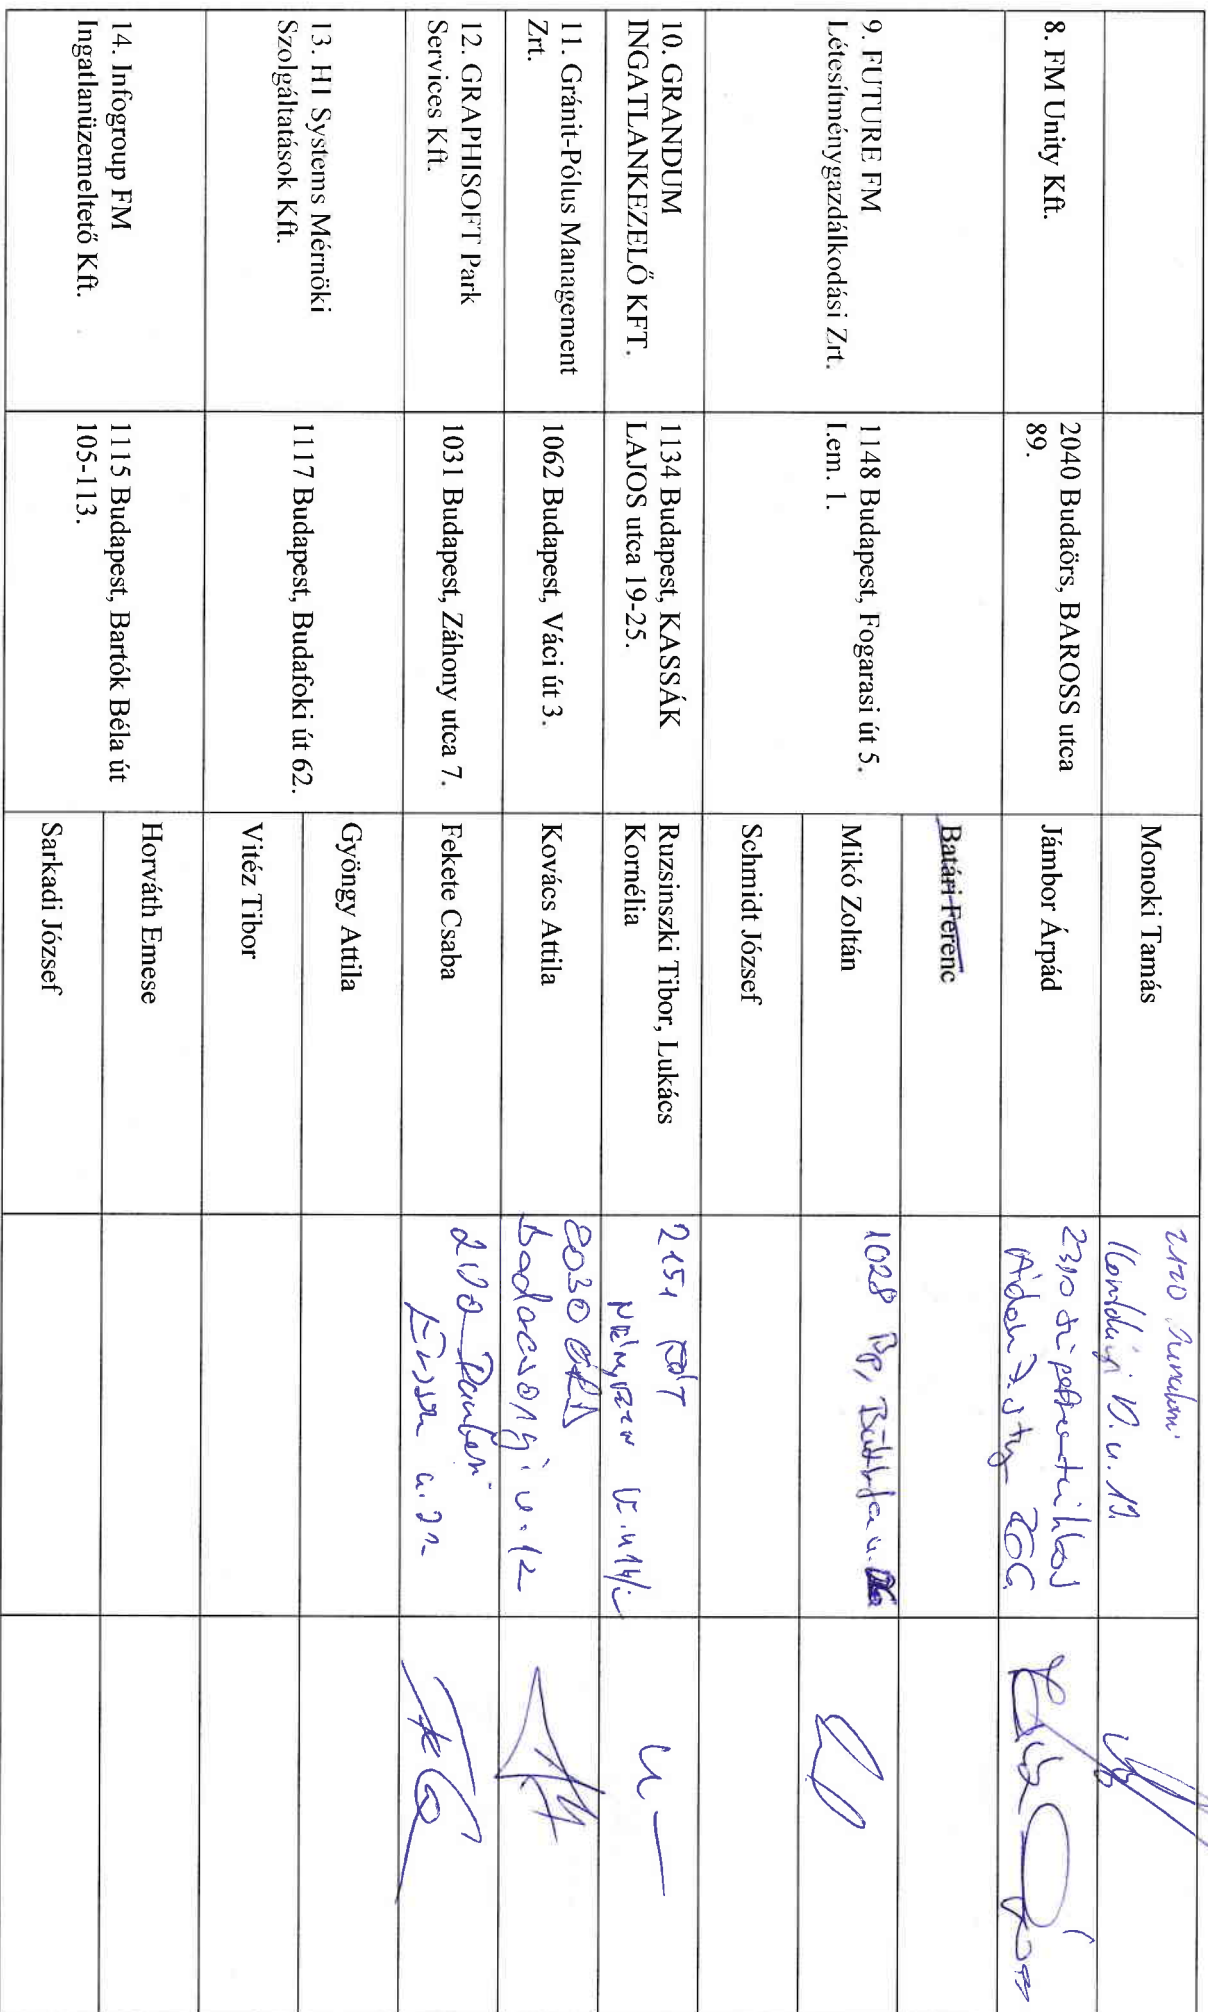 Monoki Tamás
8. FM Unity Kft.
2040 Budaörs, BAROSS utca
89.
Jámbor Árpád
Batári Ferenc
9. FUTURE FM
Létesítménygazdálkodási Zrt.
1148 Budapest, Fogarasi út 5.
I.em. 1.
Mikó Zoltán
1028 Bp,
Schmidt József
10. GRANDUM
INGATLANKEZELŐ KFT.
1134 Budapest, KASSÁK
LAJOS utca 19-25.
Ruzsinszki Tibor, Lukács
Kornélia
2151 FÓT
11. Gránit-Pólus Management
Zrt.
1062 Budapest, Váci út 3.
Kovács Attila
12. GRAPHISOFT Park
Services Kft.
1031 Budapest, Záhony utca 7.
Fekete Csaba
13. HI Systems Mérnöki
Szolgáltatások Kft.
1117 Budapest, Budafoki út 62.
Gyöngy Attila
Vitéz Tibor
14. Infogroup FM
Ingatlanüzemeltető Kft.
1115 Budapest, Bartók Béla út
105-113.
Horváth Emese
Sarkadi József